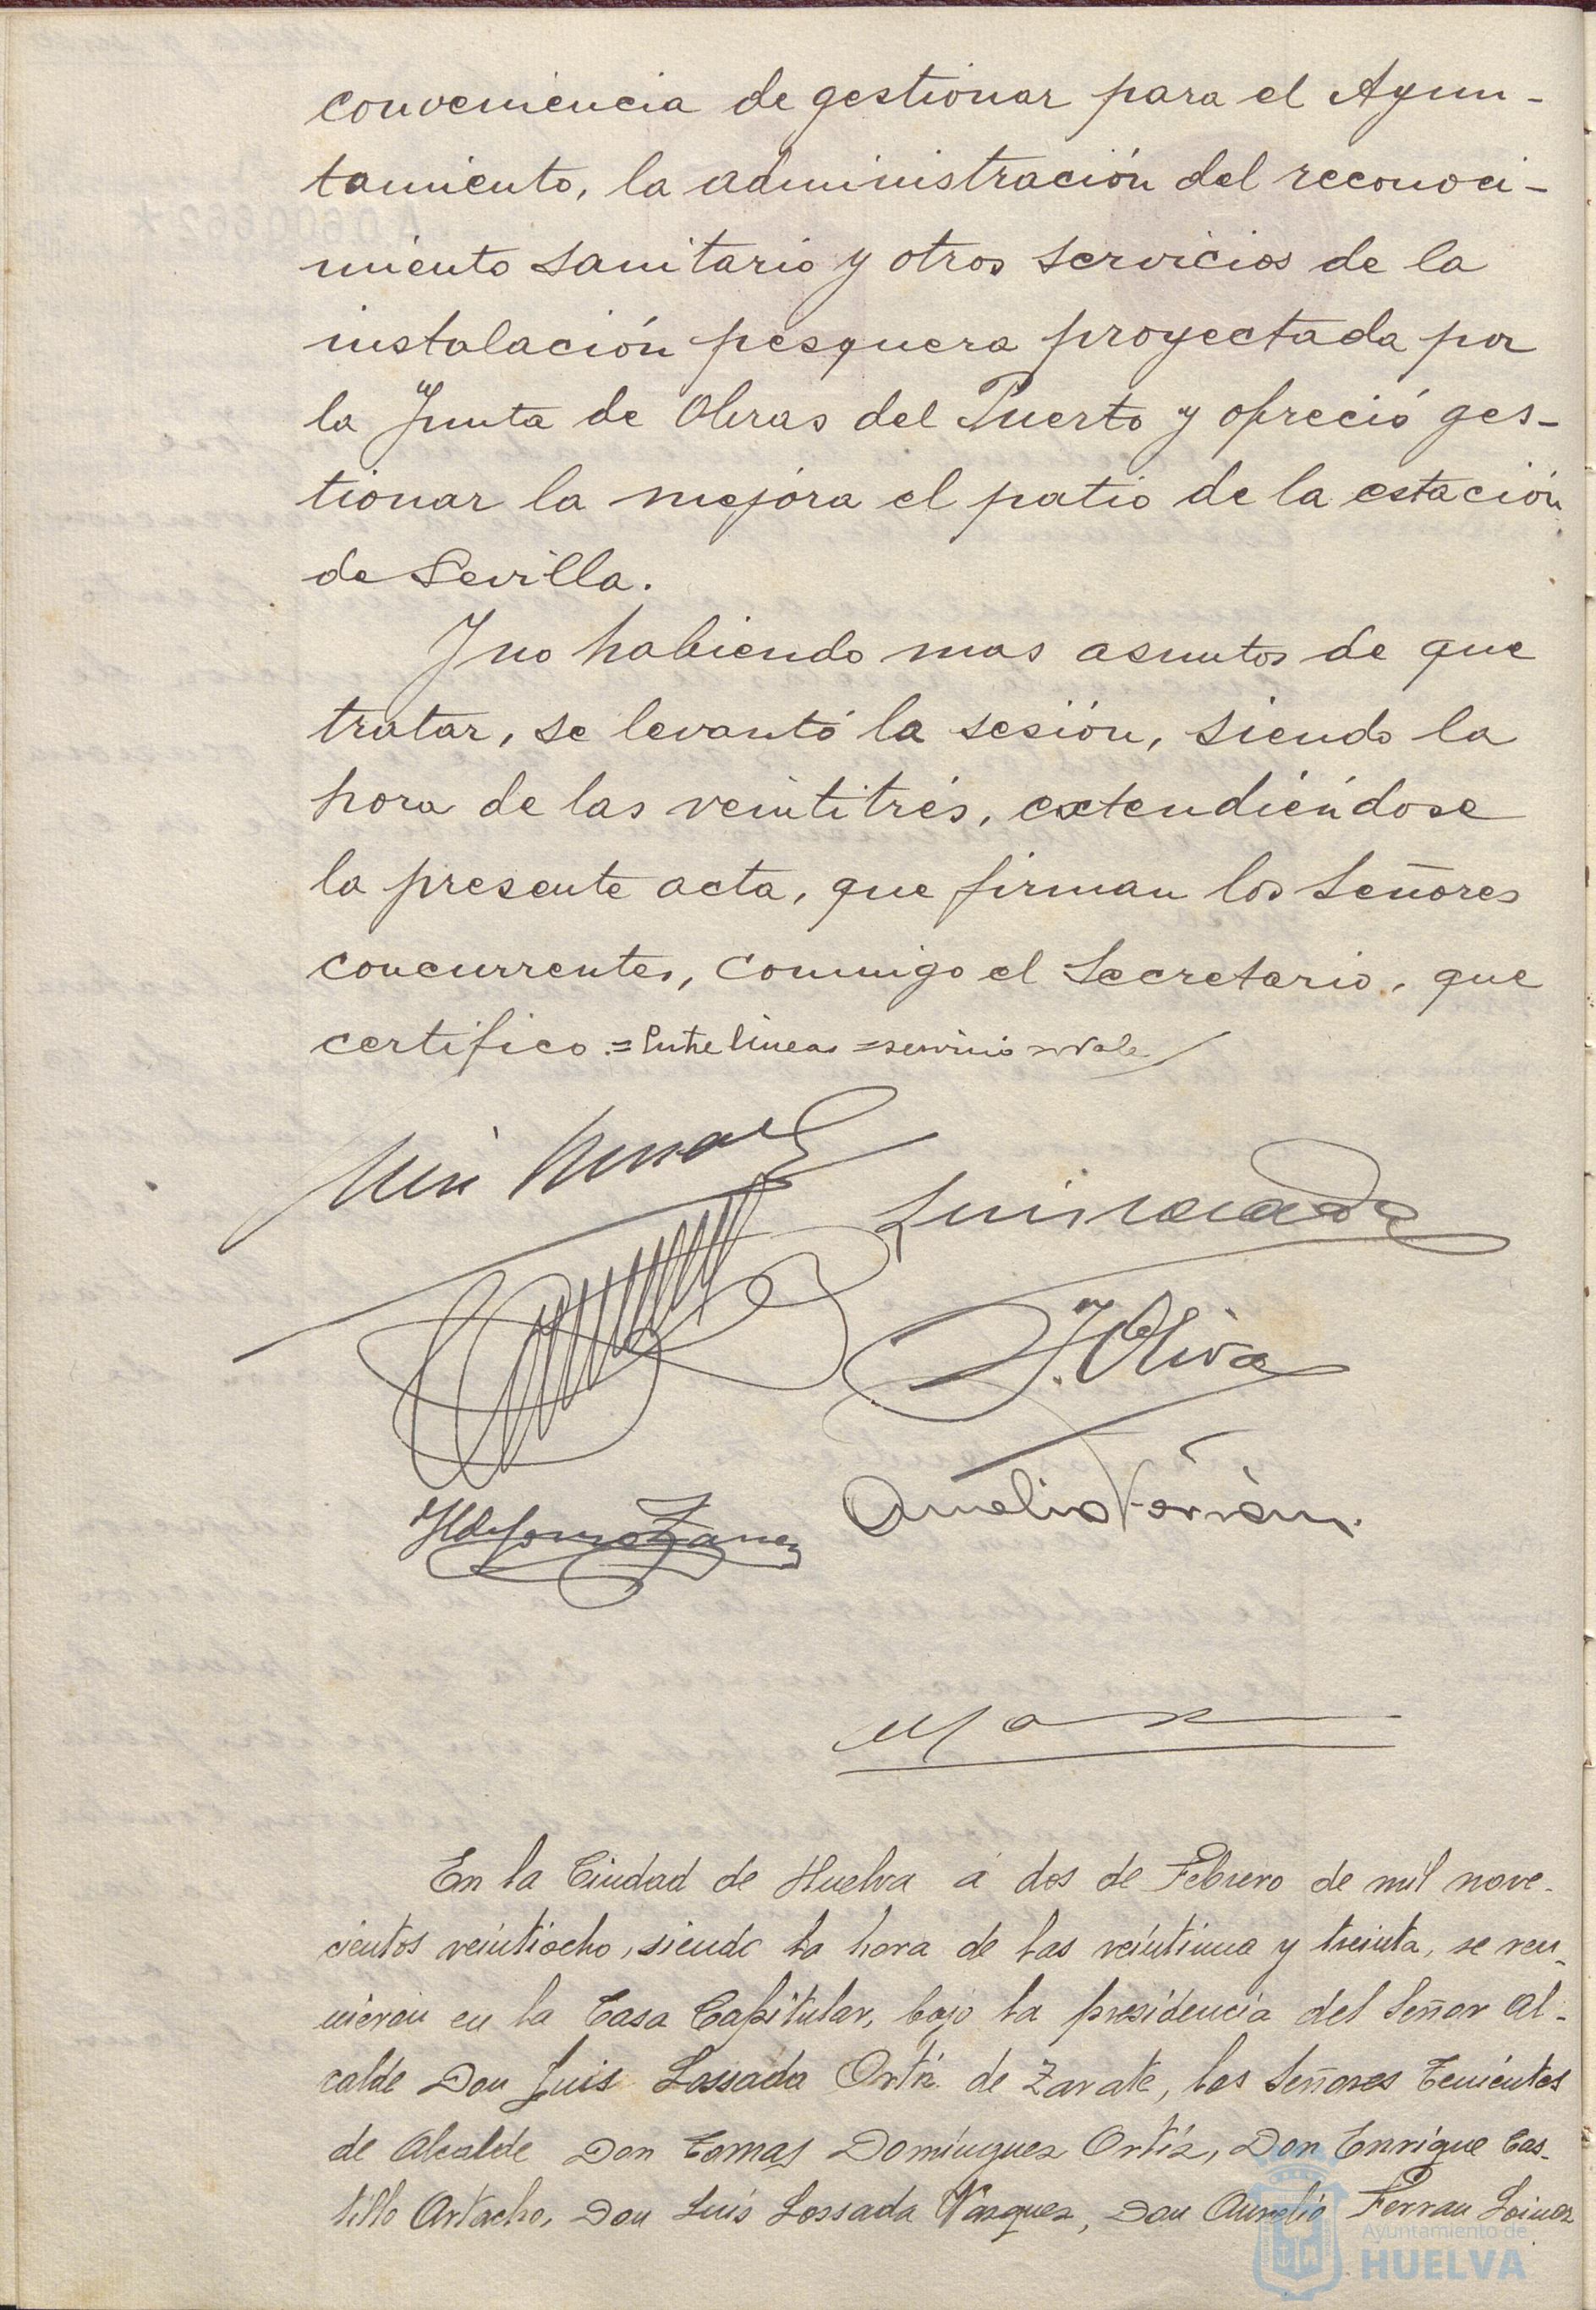 conveniencia de gestionar para el Ayun-
tamiento, la administración del reconoci-
miento sanitario y otros servicios de la
instalación pesquera proyectada por
la Junta de Obras del Puerto y ofreció ges-
tionar la mejora el patio de la estación
de Sevilla.
Y no habiendo mas asuntos de que
tratar, se levantó la sesión, siendo la
hora de las veintitrés, extendiéndose
la presente acta, que firman los Señores
concurrentes, conmigo el Secretario, que
certifico.=Entre lineas=servicio=Vale
Luis
J. Oliva
Aurelio Ferrán.
En la Ciudad de Huelva á dos de Febrero de mil nove-
cientos veintiocho, siendo la hora de las veintiuna y treinta, se reu-
nieron en la Casa Capitular, bajo la presidencia del Señor Al-
calde Don Luis Lossada Ortiz de Zarate, los Señores Tenientes
de Alcalde Don Tomas Dominguez Ortiz, Don Enrique Cas-
tillo Artacho, Don Luis Lossada Vázquez, Don Aurelio Ferran
Ayuntamiento de
HUELVA